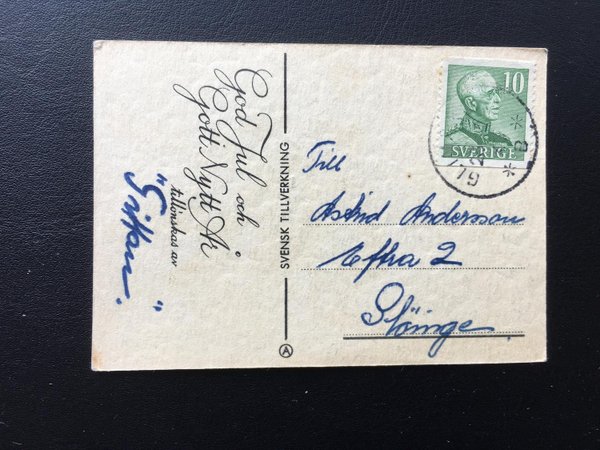 God Jul och
Gott Nytt År
tillönskas av
"Gittan".
SVENSK TILLVERKNING
A
10
SVERIGE
Till
Astrid Andersson
Eftra 2
Slöinge